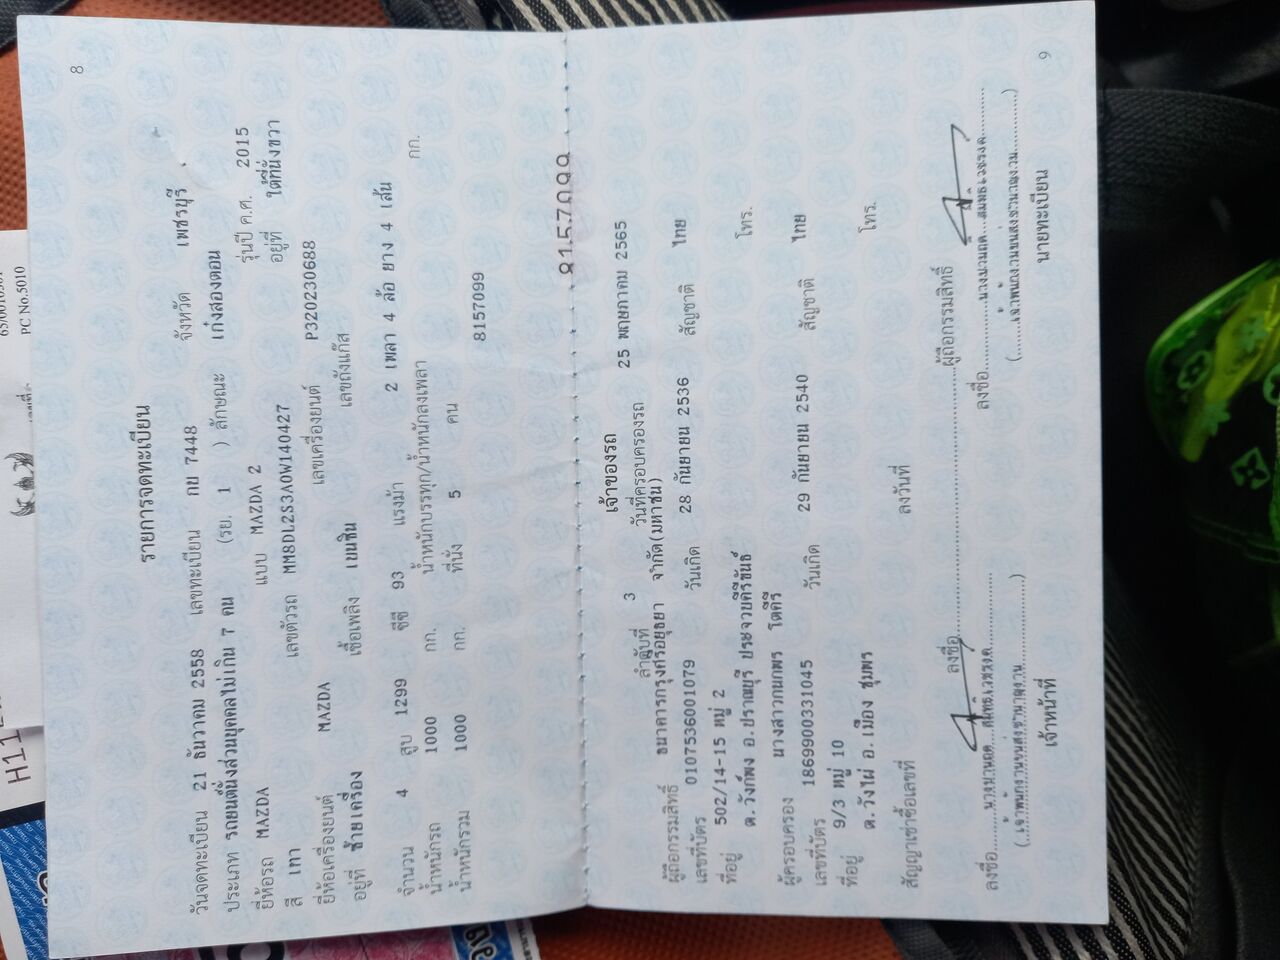 8
รายการจดทะเบียน
วันจดทะเบียน 21 ธันวาคม 2558 เลขทะเบียน กย 7448 จังหวัด เพชรบุรี
ประเภท รถยนต์นั่งส่วนบุคคลไม่เกิน 7 คน (รย. 1 ) ลักษณะ เก๋งสองตอน
ยี่ห้อรถ MAZDA แบบ MAZDA 2 รุ่นปี ค.ศ. 2015
สี เทา เลขตัวรถ MM8DL2S3A0W140427 อยู่ที่ ใต้ที่นั่งขวา
ยี่ห้อเครื่องยนต์ MAZDA เลขเครื่องยนต์ P320230688
อยู่ที่ ซ้ายเครื่อง เชื้อเพลิง เบนซิน เลขถังแก๊ส
จำนวน 4 สูบ 1299 ซีซี 93 แรงม้า 2 เพลา 4 ล้อ ยาง 4 เส้น
น้ำหนักรถ 1000 กก. น้ำหนักบรรทุก/น้ำหนักลงเพลา กก.
น้ำหนักรวม 1000 กก. ที่นั่ง 5 คน
8157099
8157099
เจ้าของรถ
ลำดับที่ 3 วันที่ครอบครองรถ 25 พฤษภาคม 2565
ผู้ถือกรรมสิทธิ์ ธนาคารกรุงศรีอยุธยา จำกัด(มหาชน)
เลขที่บัตร 0107536001079 วันเกิด 28 กันยายน 2536 สัญชาติ ไทย
ที่อยู่ 502/14-15 หมู่ 2
ต.วังก์พง อ.ปราณบุรี ประจวบคีรีขันธ์ โทร.
ผู้ครอบครอง นางสาวกนกพร โตคีรี
เลขที่บัตร 1869900331045 วันเกิด 29 กันยายน 2540 สัญชาติ ไทย
ที่อยู่ 9/3 หมู่ 10
ต.วังไผ่ อ.เมือง ชุมพร โทร.
สัญญาเช่าซื้อเลขที่ ลงวันที่
ลงชื่อ ผู้ถือกรรมสิทธิ์
ลงชื่อ ลงชื่อ
(เจ้าพนักงานขนส่งชำนาญงาน) (เจ้าพนักงานขนส่งชำนาญงาน)
เจ้าหน้าที่ นายทะเบียน
9
PC No.5010